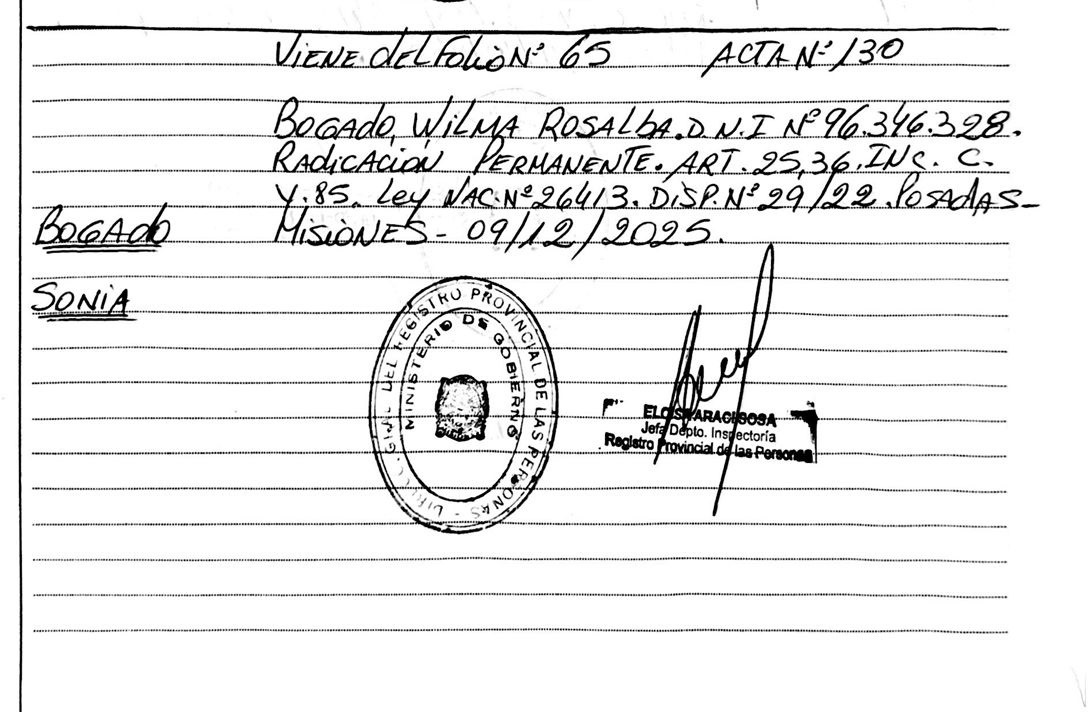 VIENE DEL FOLIO Nº 65 ACTA Nº 130
BOGADO, WILMA ROSALBA. D.N.I Nº 96.346.328.
RADICACIÓN PERMANENTE. ART. 25,36. INC. C.
Y. 85. Ley NAC. Nº 26413. DISP. Nº 29/22. POSADAS-
BOGADO MISIONES - 09/12/2025.
SONIA
DIRECC. GRAL. DEL REGISTRO PROVINCIAL DE LAS PERSONAS -
MINISTERIO DE GOBIERNO
SOSA
Jefa Depto. Inspectoría
Registro Provincial de las Personas